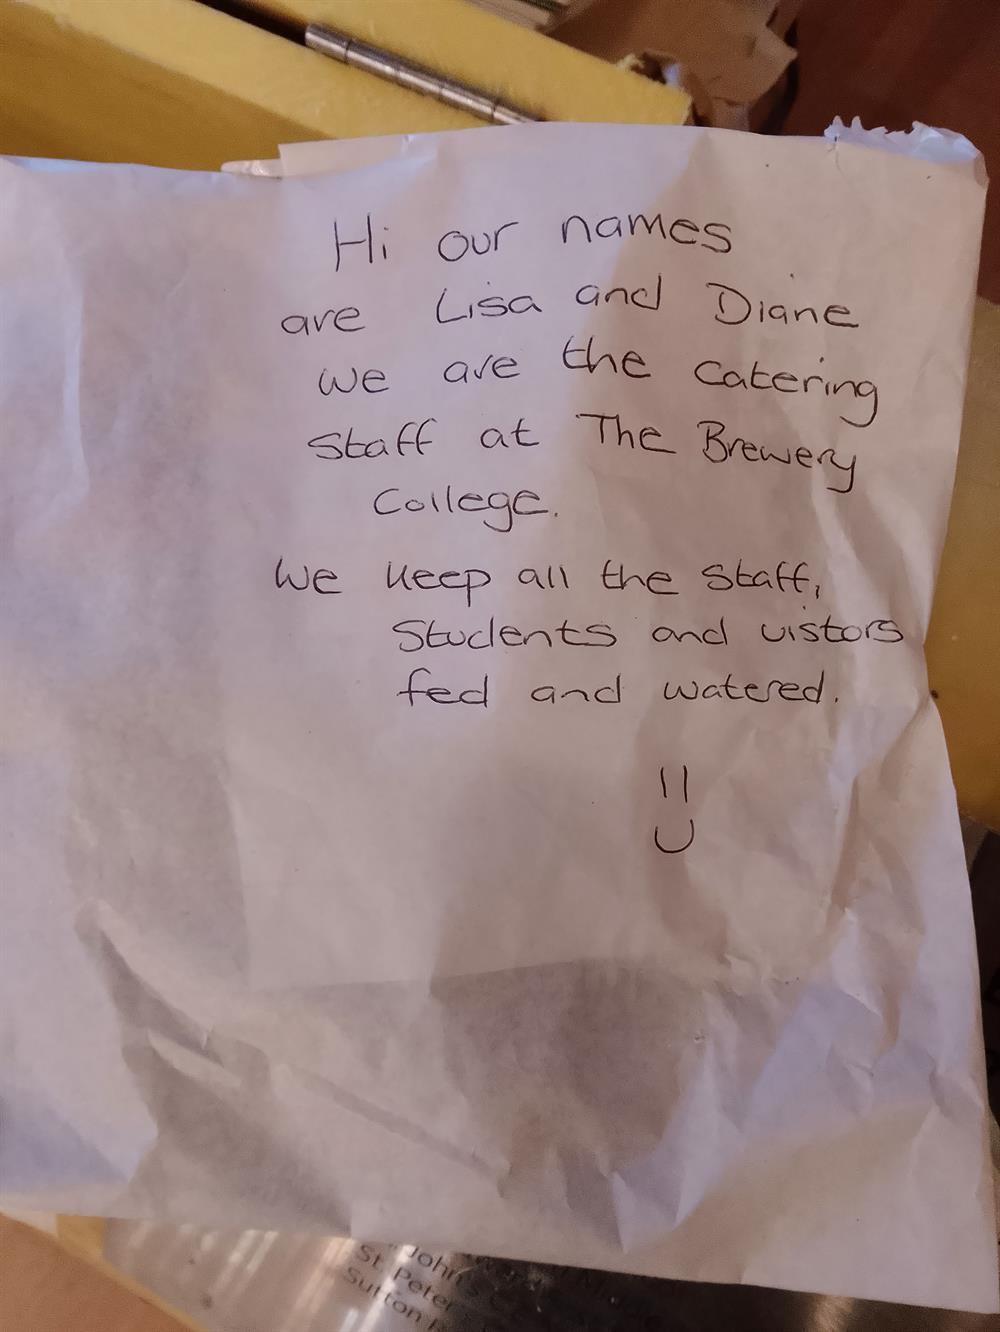 Hi our names
are Lisa and Diane
we are the catering
staff at The Brewery
College.
We keep all the staff,
Students and vistors
fed and watered.
John's
St. Peter
Sutton